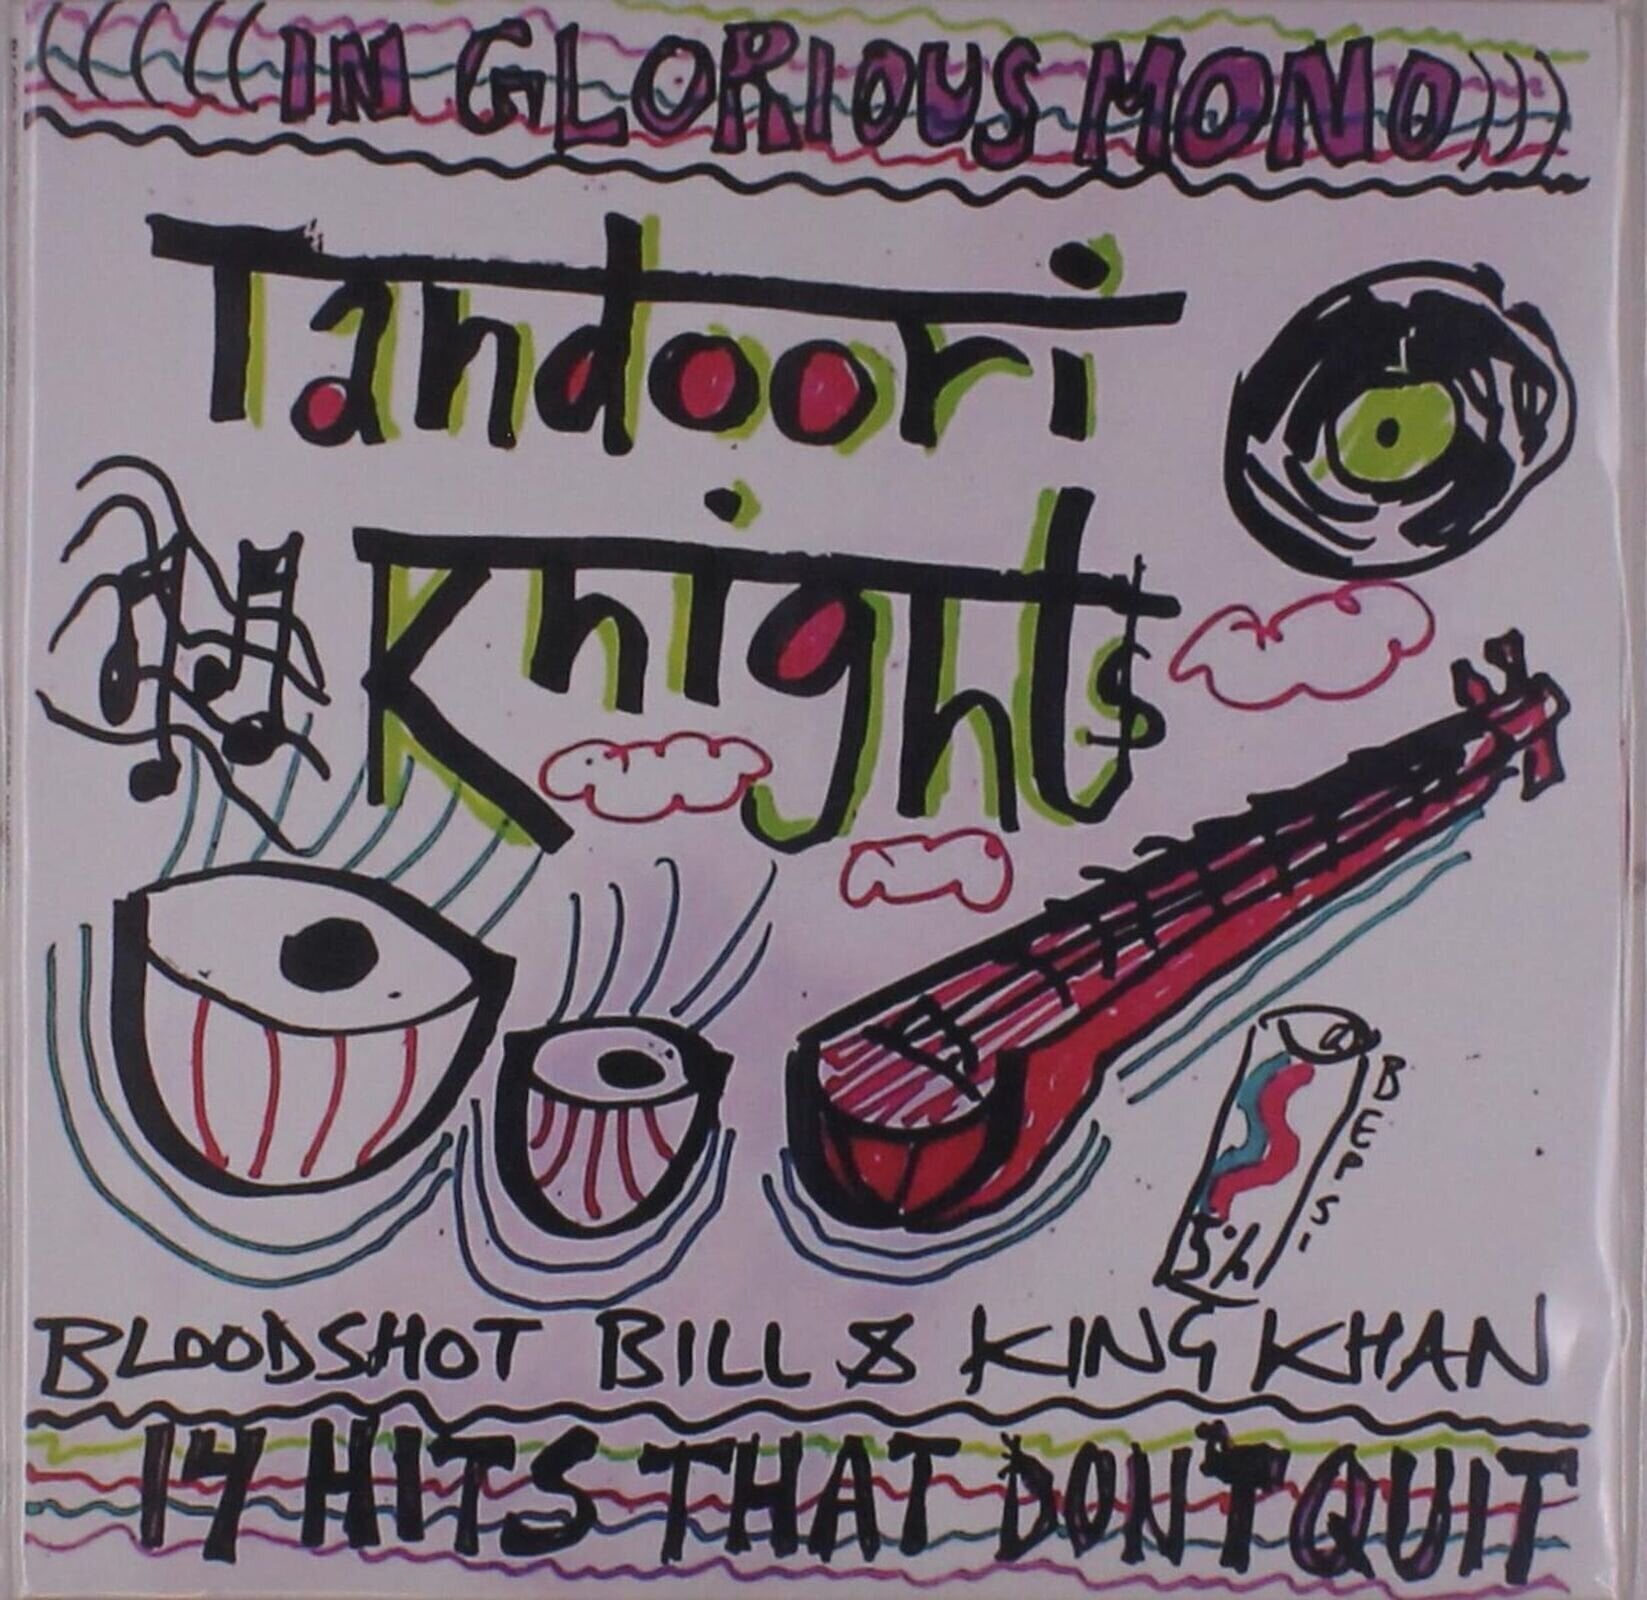 (((((IN GLORIOUS MONO)))
Tandoori
Knight$
BEPSI
5%
BLOODSHOT BILL & KING KHAN
14 HITS THAT DON'T QUIT